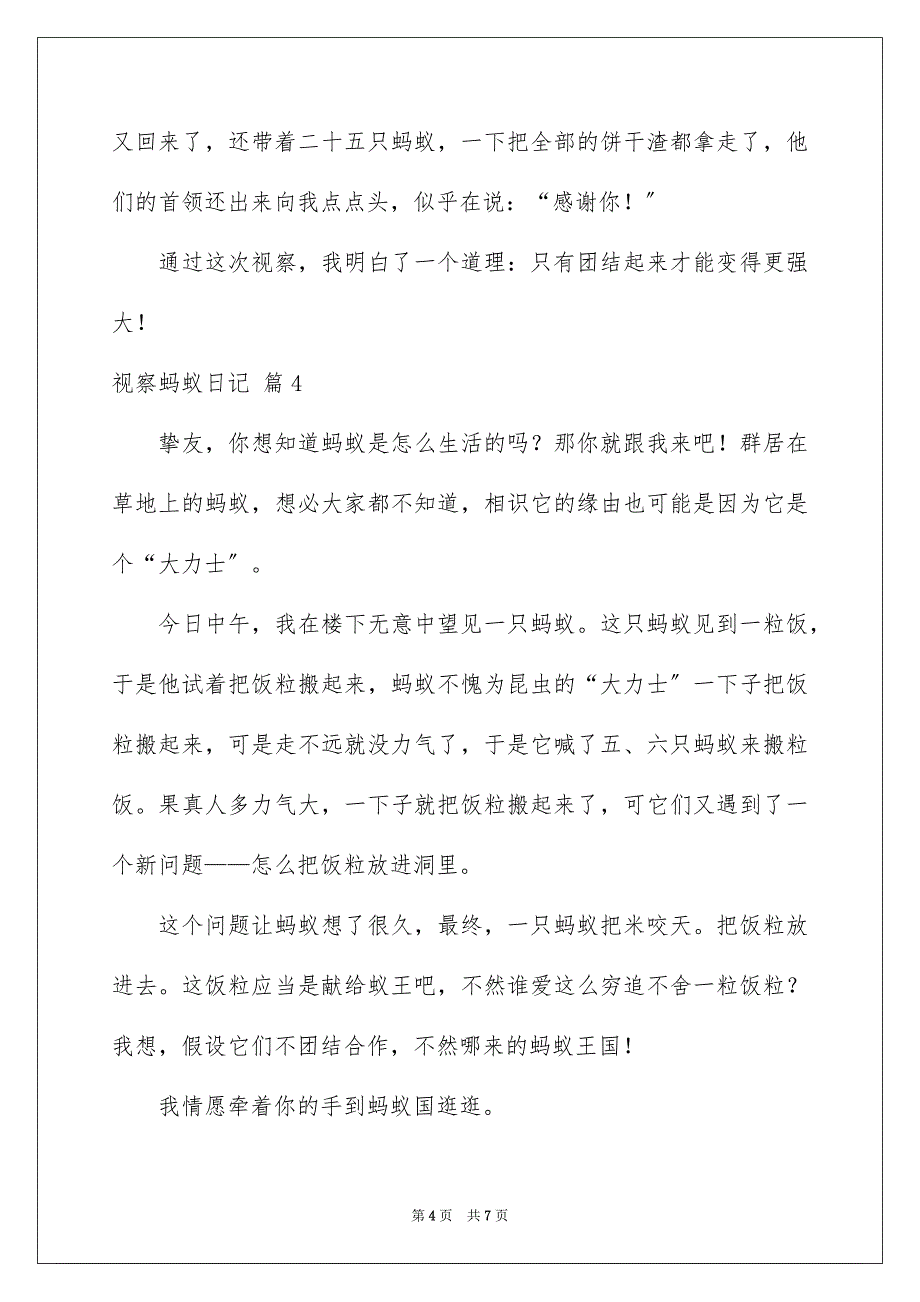 又回来了，还带着二十五只蚂蚁，一下把全部的饼干渣都拿走了，他
们的首领还出来向我点点头，似乎在说：“感谢你！〞
通过这次视察，我明白了一个道理：只有团结起来才能变得更强
大！
视察蚂蚁日记 篇4
挚友，你想知道蚂蚁是怎么生活的吗？那你就跟我来吧！群居在
草地上的蚂蚁，想必大家都不知道，相识它的缘由也可能是因为它是
个“大力士〞。
今日中午，我在楼下无意中望见一只蚂蚁。这只蚂蚁见到一粒饭，
于是他试着把饭粒搬起来，蚂蚁不愧为昆虫的“大力士〞一下子把饭
粒搬起来，可是走不远就没力气了，于是它喊了五、六只蚂蚁来搬粒
饭。果真人多力气大，一下子就把饭粒搬起来了，可它们又遇到了一
个新问题——怎么把饭粒放进洞里。
这个问题让蚂蚁想了很久，最终，一只蚂蚁把米咬天。把饭粒放
进去。这饭粒应当是献给蚁王吧，不然谁爱这么穷追不舍一粒饭粒？
我想，假设它们不团结合作，不然哪来的蚂蚁王国！
我情愿牵着你的手到蚂蚁国逛逛。
第4页 共7页